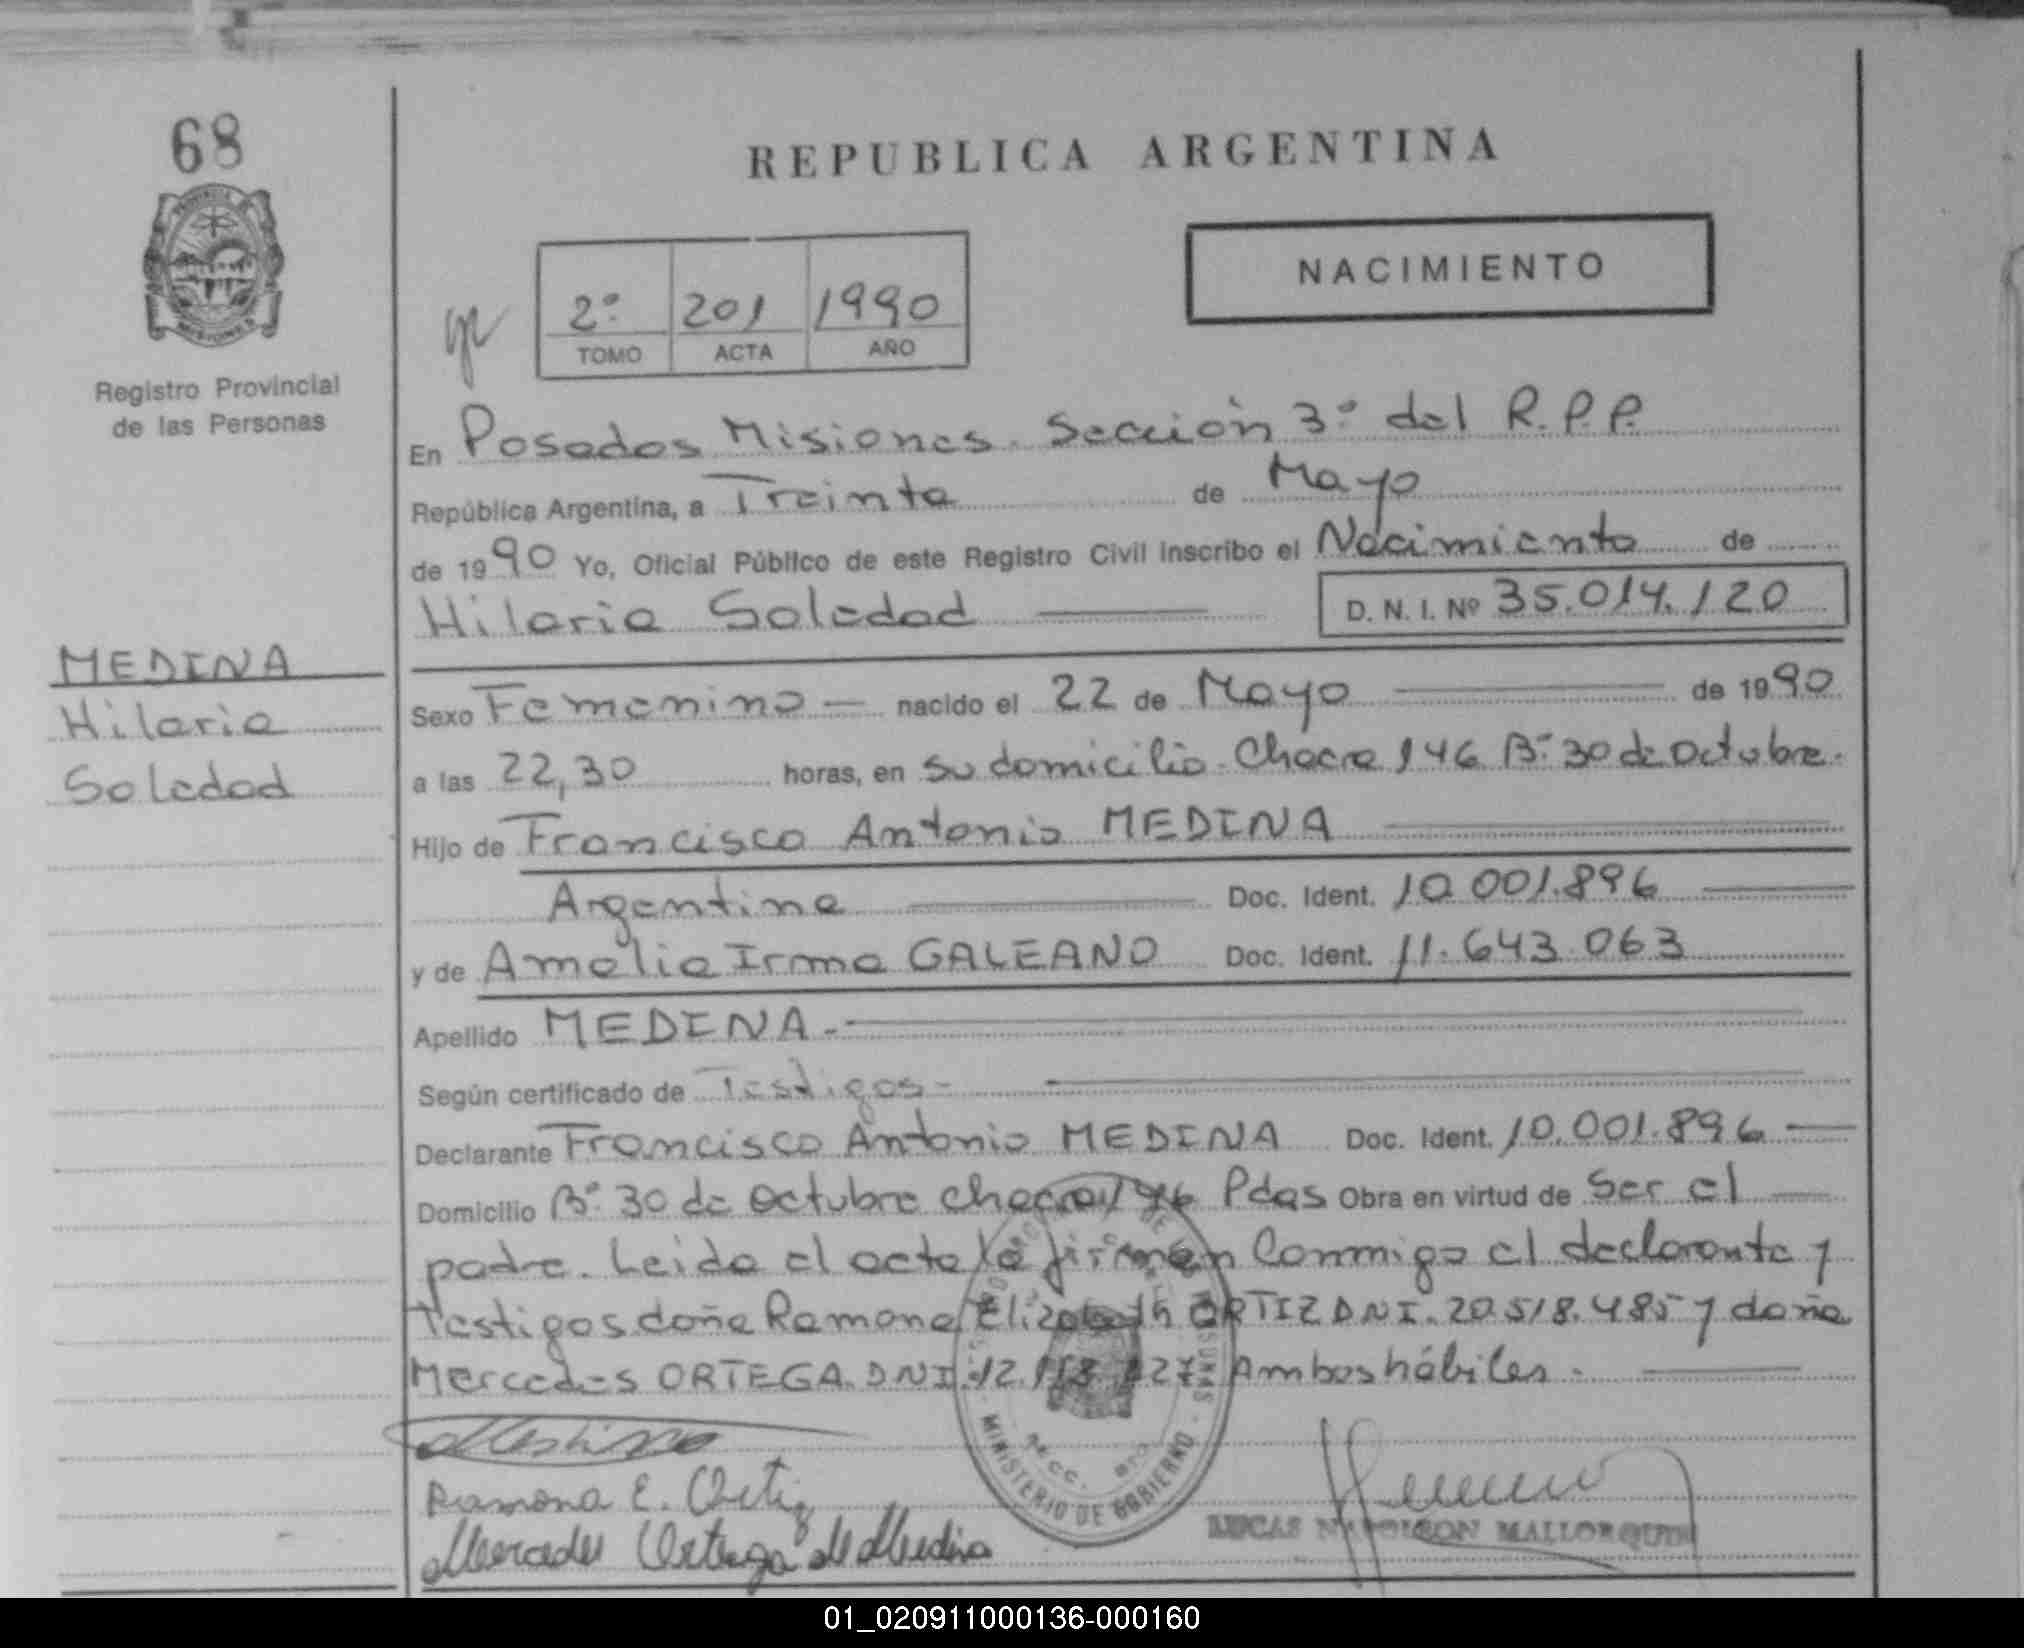 68
REPUBLICA ARGENTINA
NACIMIENTO
2º 201 1990
TOMO ACTA AÑO
Registro Provincial
de las Personas
En Posadas Misiones. Sección 3º del R.P.P.
República Argentina, a Treinta de Mayo
de 1990 Yo, Oficial Público de este Registro Civil inscribo el Nacimiento de
Hilaria Soledad D. N. I. Nº 35.014.120
MEDINA
Hilaria
Soledad
Sexo Femenino — nacido el 22 de Mayo de 1990
a las 22,30 horas, en su domicilio. Chacra 146 Bº 30 de Octubre.
Hijo de Francisco Antonio MEDINA
Argentina Doc. Ident. 10.001.896
y de Amelia Irma GALEANO Doc. Ident. 11.643.063
Apellido MEDINA.-
Según certificado de Testigos-
Declarante Francisco Antonio MEDINA Doc. Ident. 10.001.896 —
Domicilio Bº 30 de Octubre Chacra 146 Pdas Obra en virtud de Ser el
padre. Leida el acta la firman Conmigo el declarante y
Testigos doña Ramona Elizabeth ORTIZ DNI. 20.518.485 y doña
Mercedes ORTEGA DNI. 12. Ambos hábiles.
Ramona E. Ortiz
Mercedes Ortega de Medina
MINISTERIO DE GOBIERNO
LUCAS NAPOLEON MALLORQUIN
01_020911000136-000160